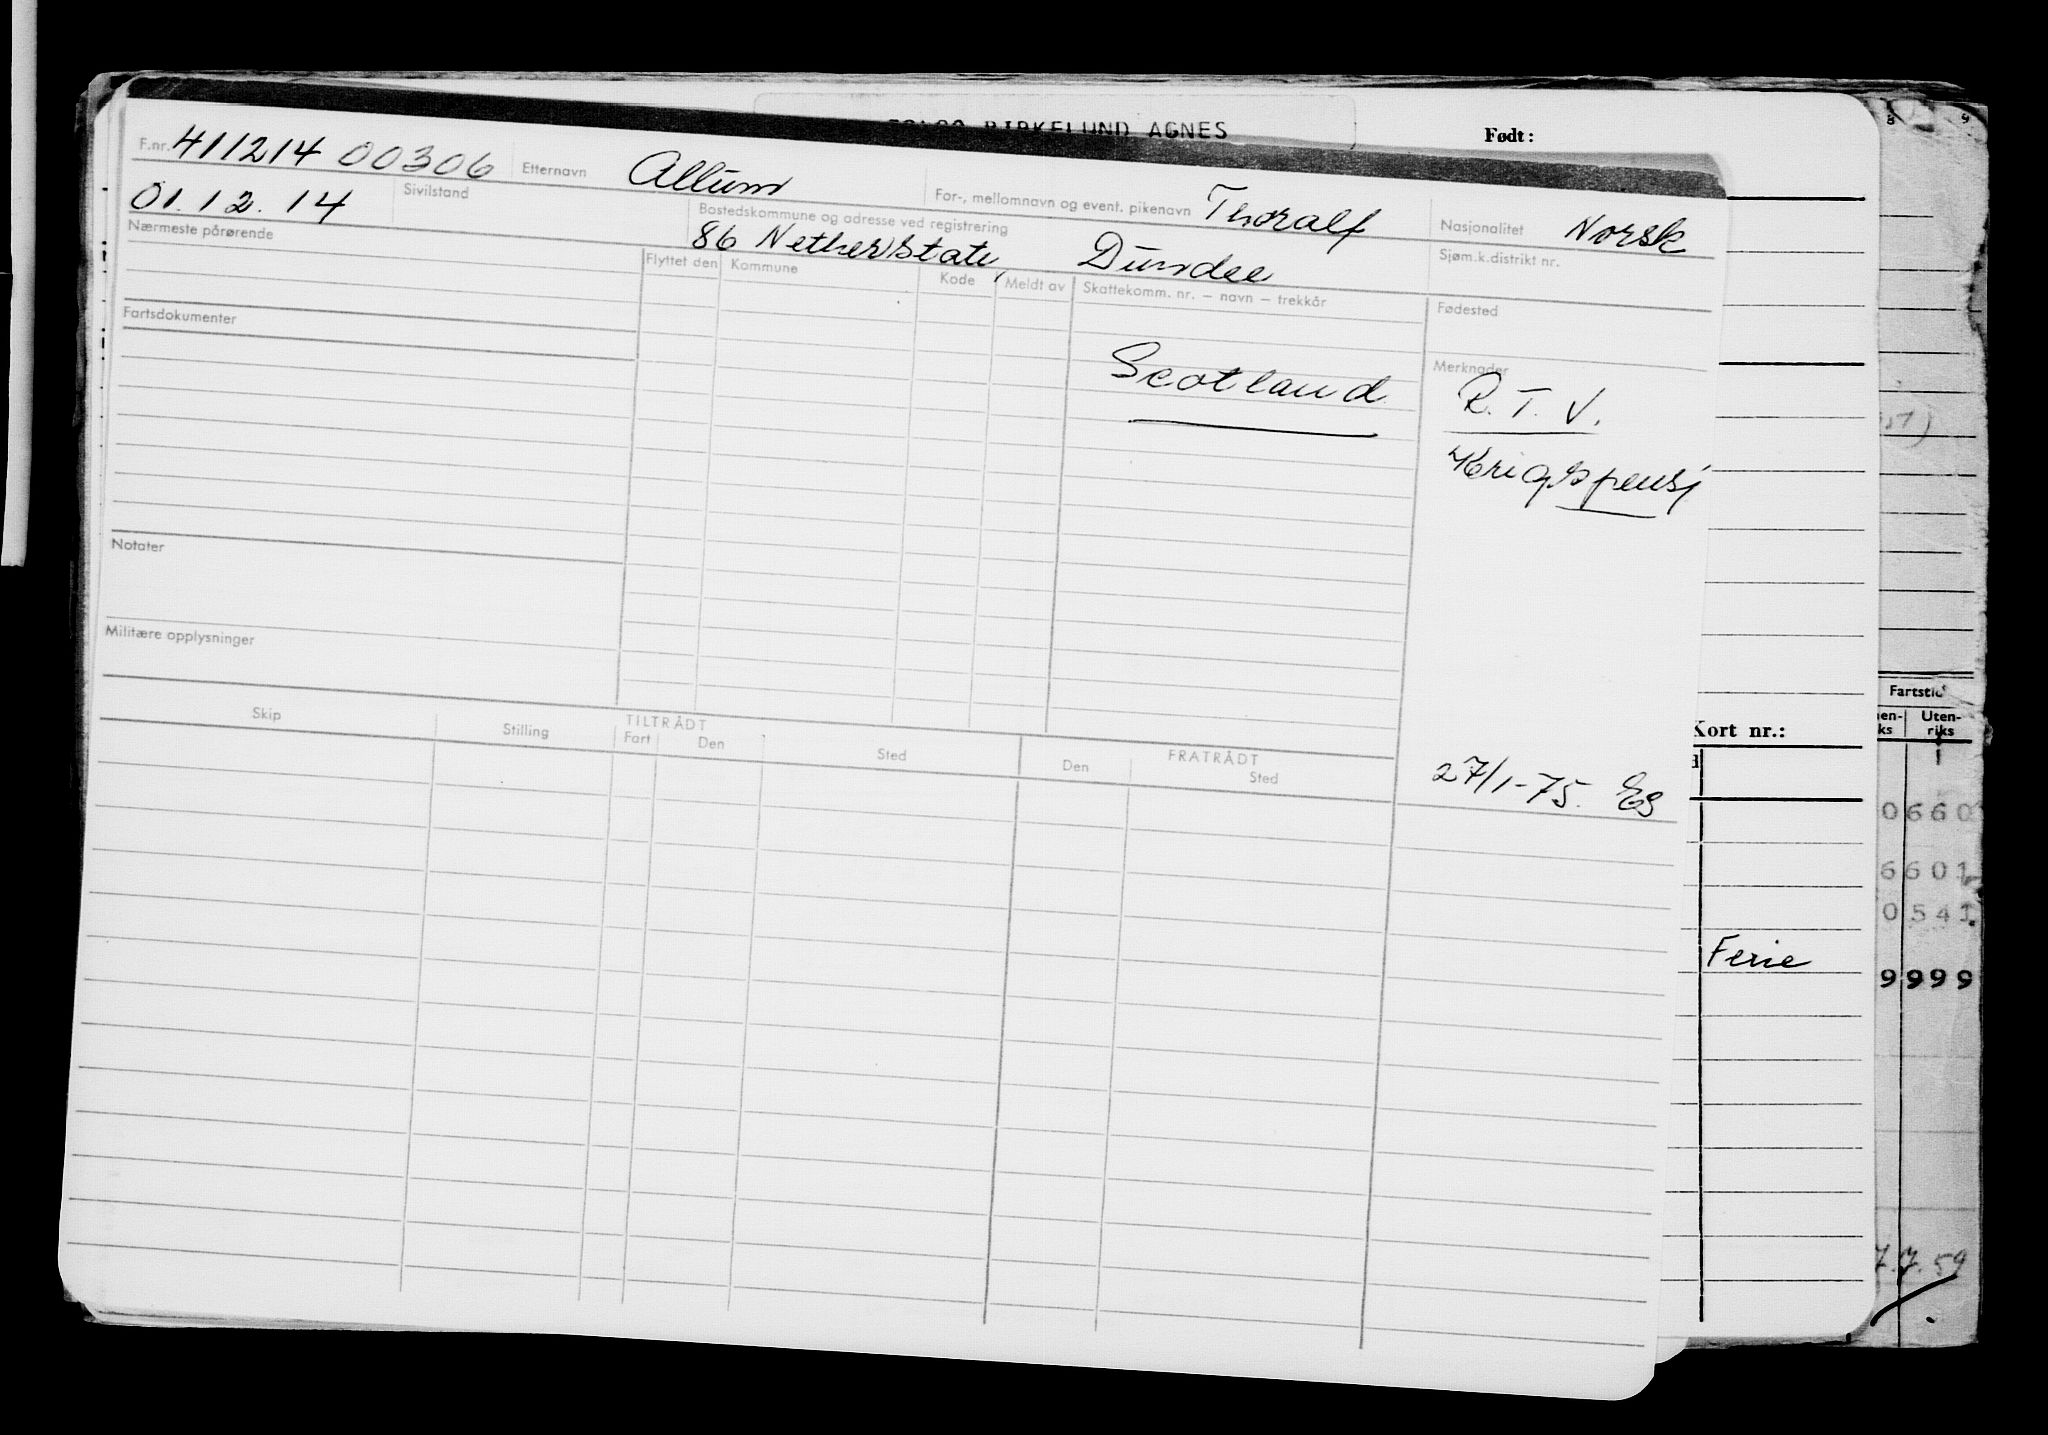 BIRKELUND AGNES
Født:
F.nr. 411214 00306 Etternavn Allum For-, mellomnavn og event. pikenavn Thoralf Nasjonalitet Norsk
01.12.14 Sivilstand Bostedskommune og adresse ved registrering 86 Sjøm.k.distrikt nr.
Dundee
Nærmeste pårørende Flyttet den Kommune Kode Meldt av Skattekomm. nr. – navn – trekkår Fødested
Fartsdokumenter Scotland Merknader
R. T. V.
Krigspensj
Notater
Militære opplysninger
Skip Stilling TILTRÅDT Fart Den Sted FRATRÅDT Den Sted
27/1-75. Eg
Fartstid
Uten-
riks
Kort nr.:
0660
6601
0541
Ferie
9999
7.7.59